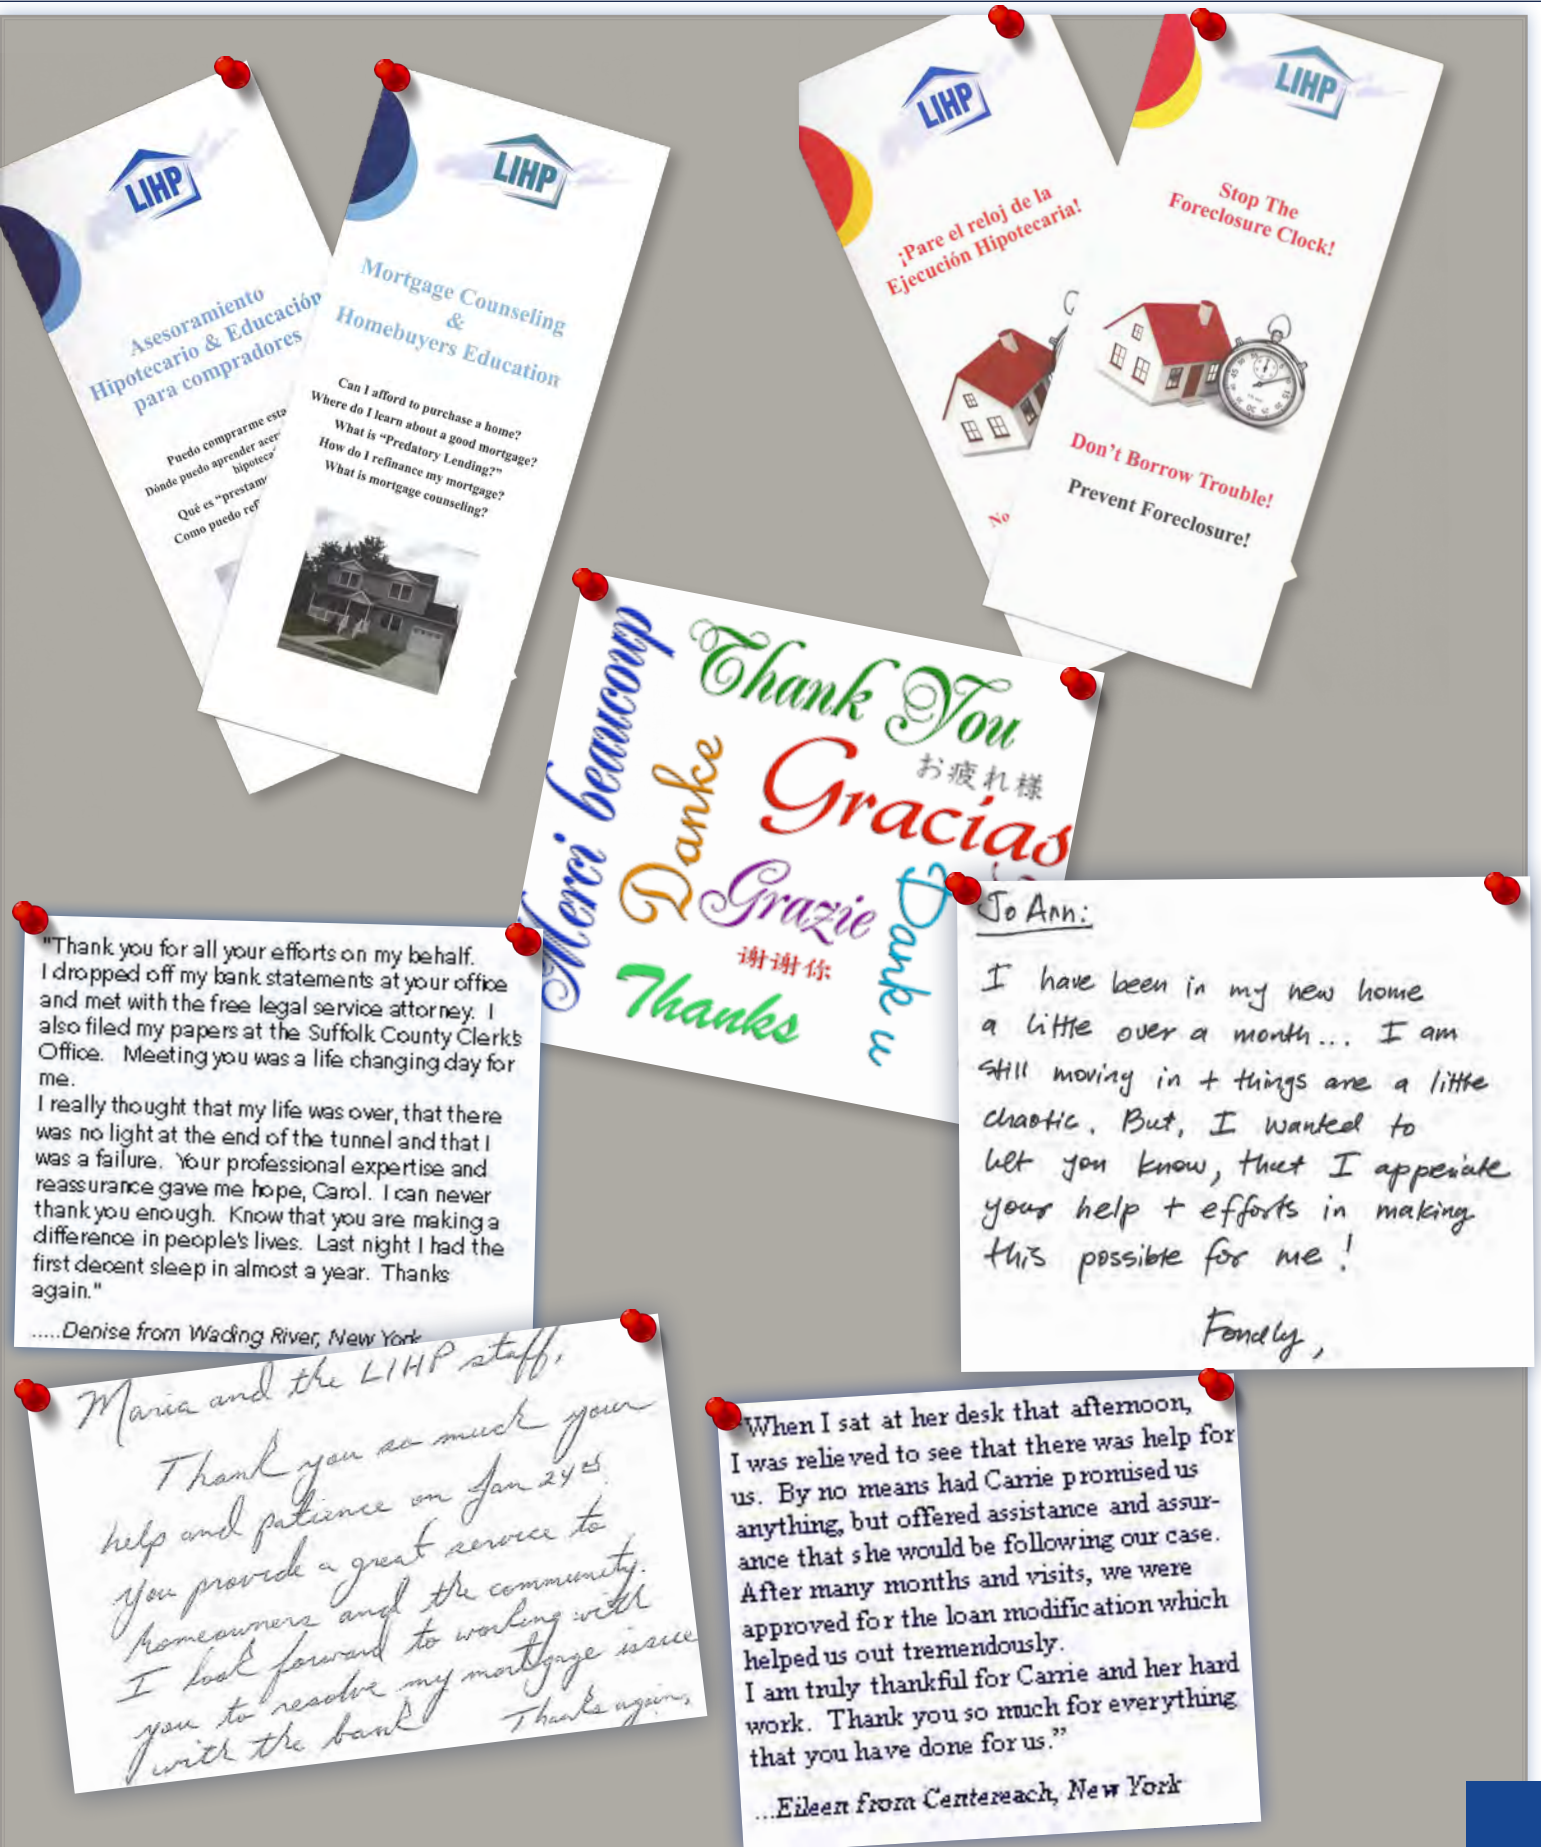 LIHP
Asesoramiento
Hipotecario & Educación
para compradores
Puedo comprarme esta
Dónde puedo aprender acer
hipoteca
Qué es “prestam
Como puedo ref
LIHP
Mortgage Counseling
&
Homebuyers Education
Can I afford to purchase a home?
Where do I learn about a good mortgage?
What is “Predatory Lending?”
How do I refinance my mortgage?
What is mortgage counseling?
LIHP
¡Pare el reloj de la
Ejecución Hipotecaria!
No
LIHP
Stop The
Foreclosure Clock!
Don’t Borrow Trouble!
Prevent Foreclosure!
Merci beaucoup
Thank You
お疲れ様
Danke
Gracias
Grazie
Dank u
谢谢你
Thanks
"Thank you for all your efforts on my behalf.
I dropped off my bank statements at your office
and met with the free legal service attorney. I
also filed my papers at the Suffolk County Clerk's
Office. Meeting you was a life changing day for
me.
I really thought that my life was over, that there
was no light at the end of the tunnel and that I
was a failure. Your professional expertise and
reassurance gave me hope, Carol. I can never
thank you enough. Know that you are making a
difference in people's lives. Last night I had the
first decent sleep in almost a year. Thanks
again."
.....Denise from Wading River, New York
Jo Ann:
I have been in my new home
a little over a month... I am
still moving in + things are a little
chaotic. But, I wanted to
let you know, that I appeciate
your help + efforts in making
this possible for me!
Fondly,
Maria and the LIHP staff,
Thank you so much your
help and patience on Jan 24th.
You provide a great service to
homeowners and the community.
I look forward to working with
you to resolve my mortgage issue
with the bank
Thanks again,
"When I sat at her desk that afternoon,
I was relieved to see that there was help for
us. By no means had Carrie promised us
anything, but offered assistance and assur-
ance that she would be following our case.
After many months and visits, we were
approved for the loan modification which
helped us out tremendously.
I am truly thankful for Carrie and her hard
work. Thank you so much for everything
that you have done for us.”
...Eileen from Centereach, New York